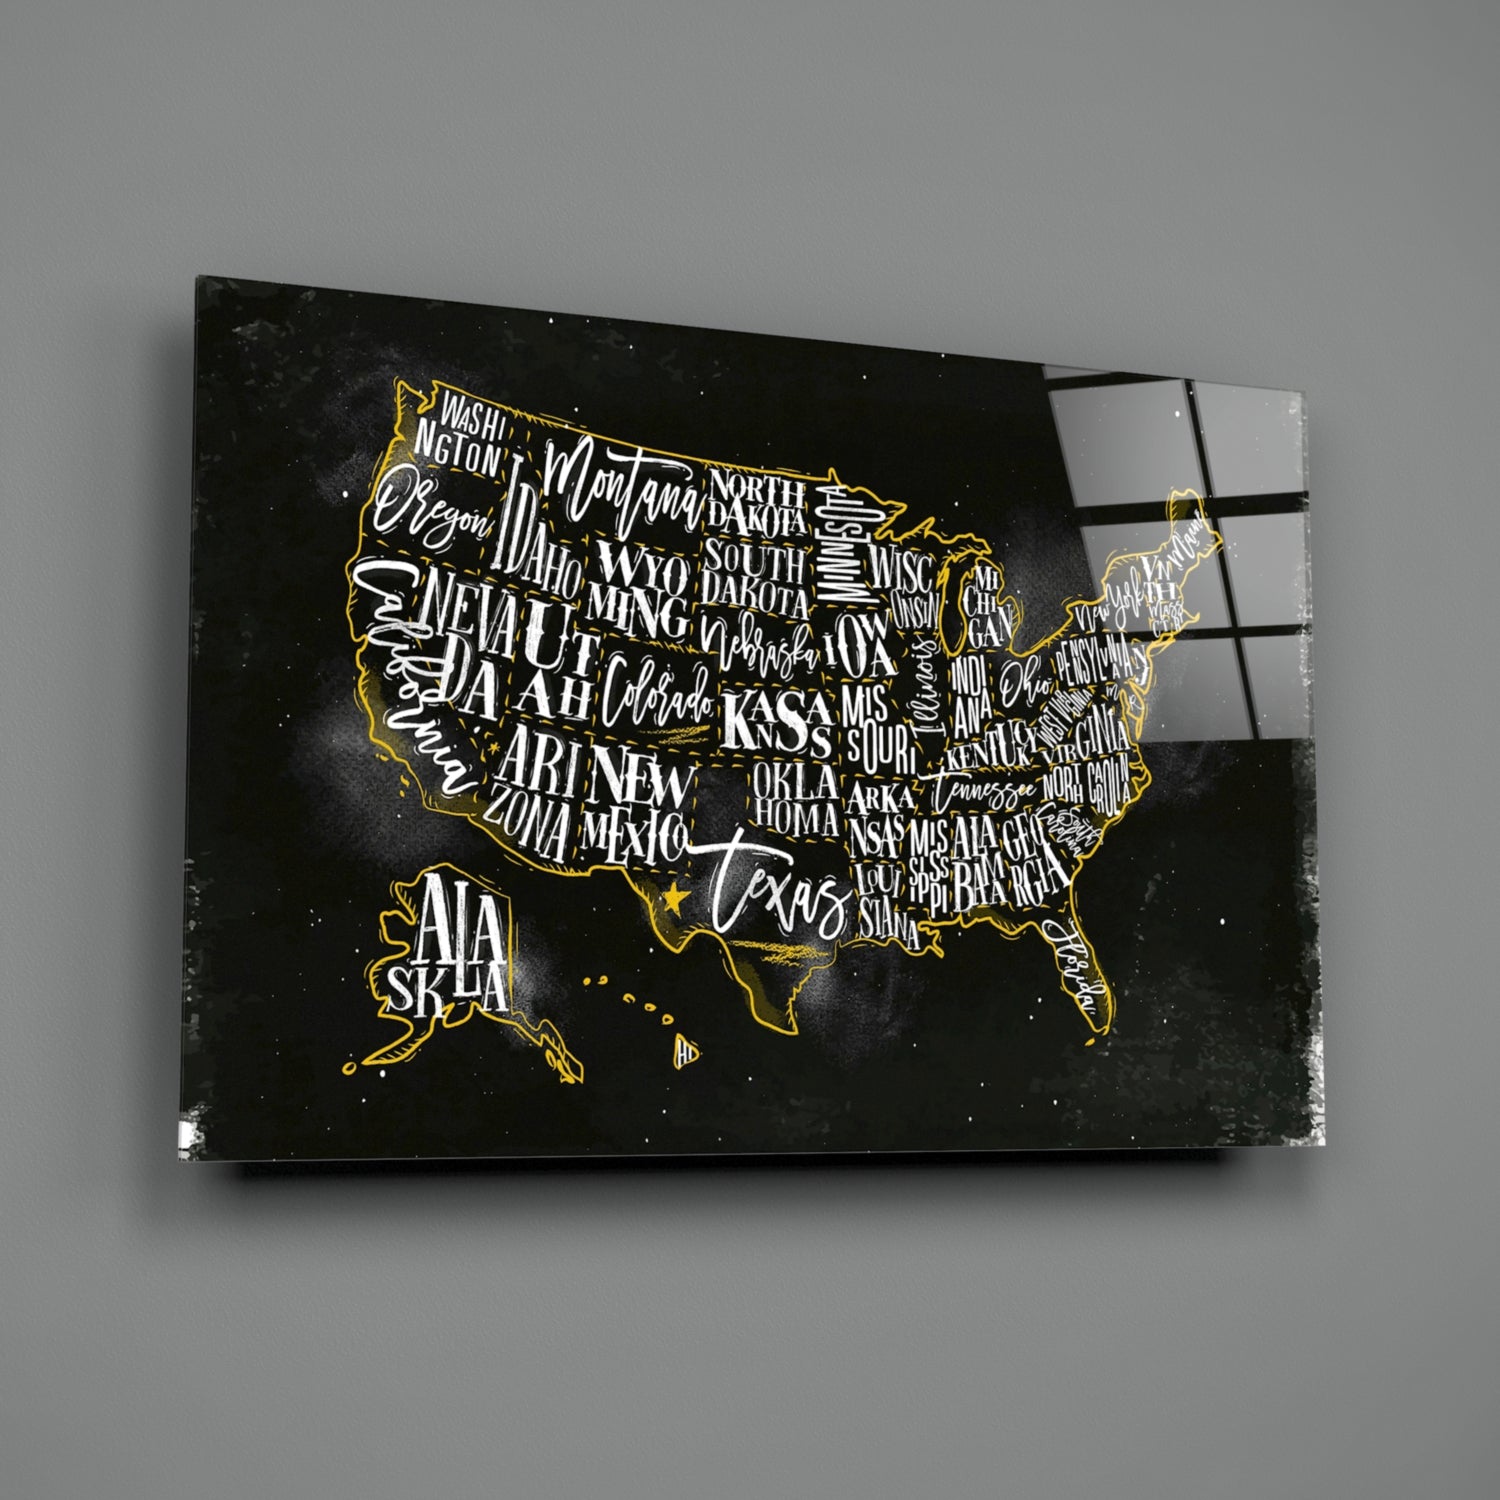 WASHI
NGTON
Oregon
California
IDAHO
NEVA
DA
Montana
WYO
MING
UT
AH
Colorado
ARI
ZONA
NEW
MEXICO
NORTH
DAKOTA
SOUTH
DAKOTA
Nebraska
KANSAS
OKLA
HOMA
Texas
MINNESOTA
IOWA
MIS
SOURI
ARKA
NSAS
LOUI
SIANA
WISC
ONSIN
Illinois
MI
CHI
GAN
INDI
ANA
Ohio
KENTUCKY
Tennessee
MIS
SISS
IPPI
ALA
BAMA
GEO
RGIA
Florida
South
Carolina
NORTH CAROLINA
VIRGINIA
WEST VIRGINIA
PENSYLVANIA
New York
VT
NH
MASS
CT RI
Maine
ALA
SKA
HI